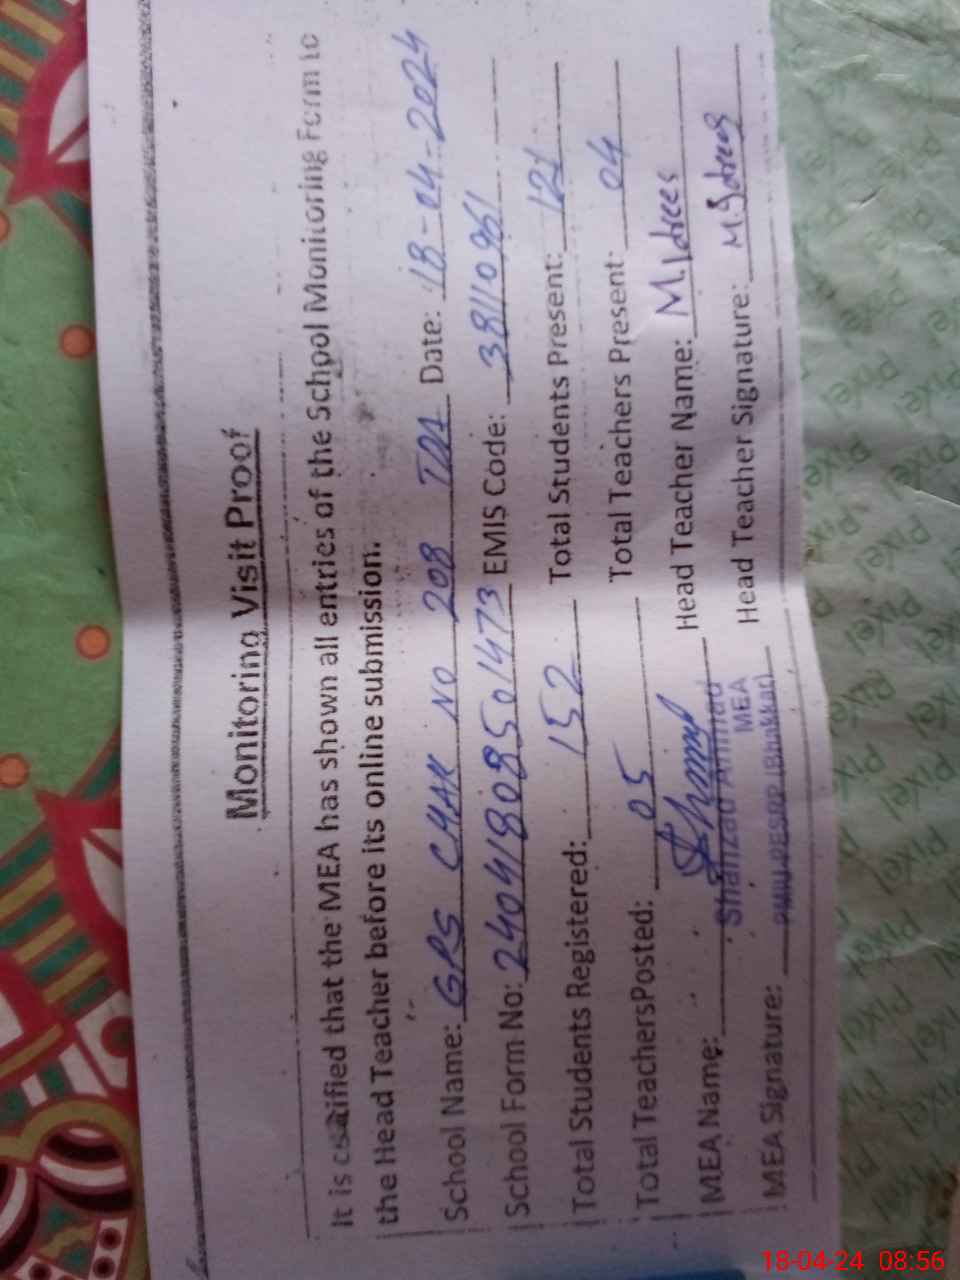 Monitoring Visit Proof
It is certified that the MEA has shown all entries of the School Monitoring Form to
the Head Teacher before its online submission.
School Name: GPS CHAK NO 208 TDA Date: 18-04-2024
School Form No: 24041808501473 EMIS Code: 38110961
Total Students Registered: 152 Total Students Present: 121
Total TeachersPosted: 05 Total Teachers Present: 04
MEA Name: Shahzad Ahmad Head Teacher Name: M.Idrees
MEA
MEA Signature: PMIU-PESRP (Bhakkar) Head Teacher Signature: M.Idrees
Pixel
18-04-24 08:56